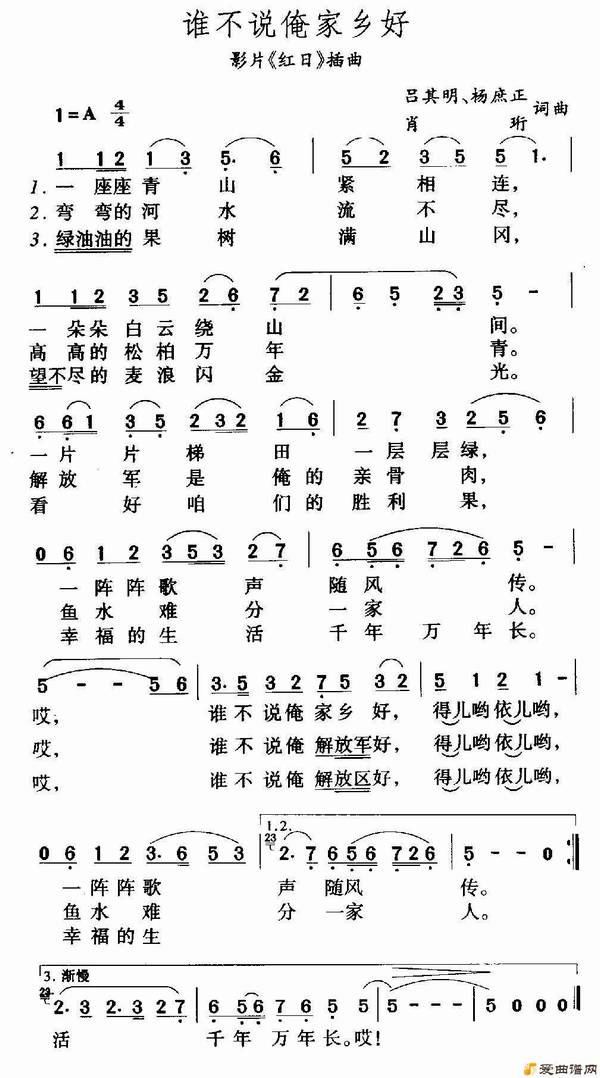 谁不说俺家乡好
影片《红日》插曲
1=A 4/4
吕其明、杨庶正
肖珩 词曲
1 1 12 1 3 5· 6 | 5 2 3 5 5 1·
1. 一座座青山紧相连,
2. 弯弯的河水流不尽,
3. 绿油油的果树满山冈,
1 12 3 5 2 6 7 2 | 6 5 23 5 -
一朵朵白云绕山间。
高高的松柏万年青。
望不尽的麦浪闪金光。
6 61 3 5 232 1 6 | 2 7 3 256
一片片梯田一层层绿,
解放军是俺的亲骨肉,
看好咱们的胜利果,
0 6 1 2 353 2 7 | 6 56 726 5 -
一阵阵歌声随风传。
鱼水难分一家人。
幸福的生活千年万年长。
5 - - 56 | 3·5 32 75 32 | 5 1 2 1 -
哎, 谁不说俺家乡好, 得儿哟依儿哟,
哎, 谁不说俺解放军好, 得儿哟依儿哟,
哎, 谁不说俺解放区好, 得儿哟依儿哟,
1.2.
0 6 1 2 3·6 5 3 | 23 2·7 656 726 | 5 - - 0 :|
一阵阵歌声随风传。
鱼水难分一家人。
幸福的生
3. 渐慢
23 2·3 2·3 27 | 6 156 1 2 | 1 - - - | 1 - - 0 ‖
活千年万年长。哎!
爱曲谱网